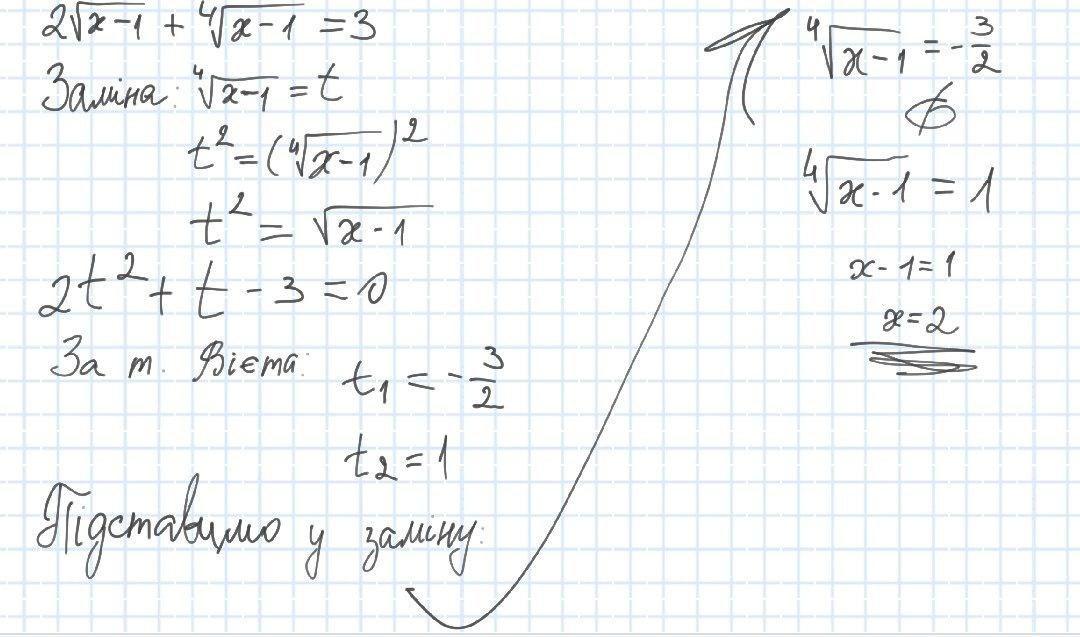 2√(x-1) + ⁴√(x-1) = 3
Заміна: ⁴√(x-1) = t
t² = (⁴√(x-1))²
t² = √(x-1)
2t² + t - 3 = 0
За т. Вієта:
t₁ = -3/2
t₂ = 1
Підставимо у заміну:
⁴√(x-1) = -3/2
∅
⁴√(x-1) = 1
x-1=1
x=2